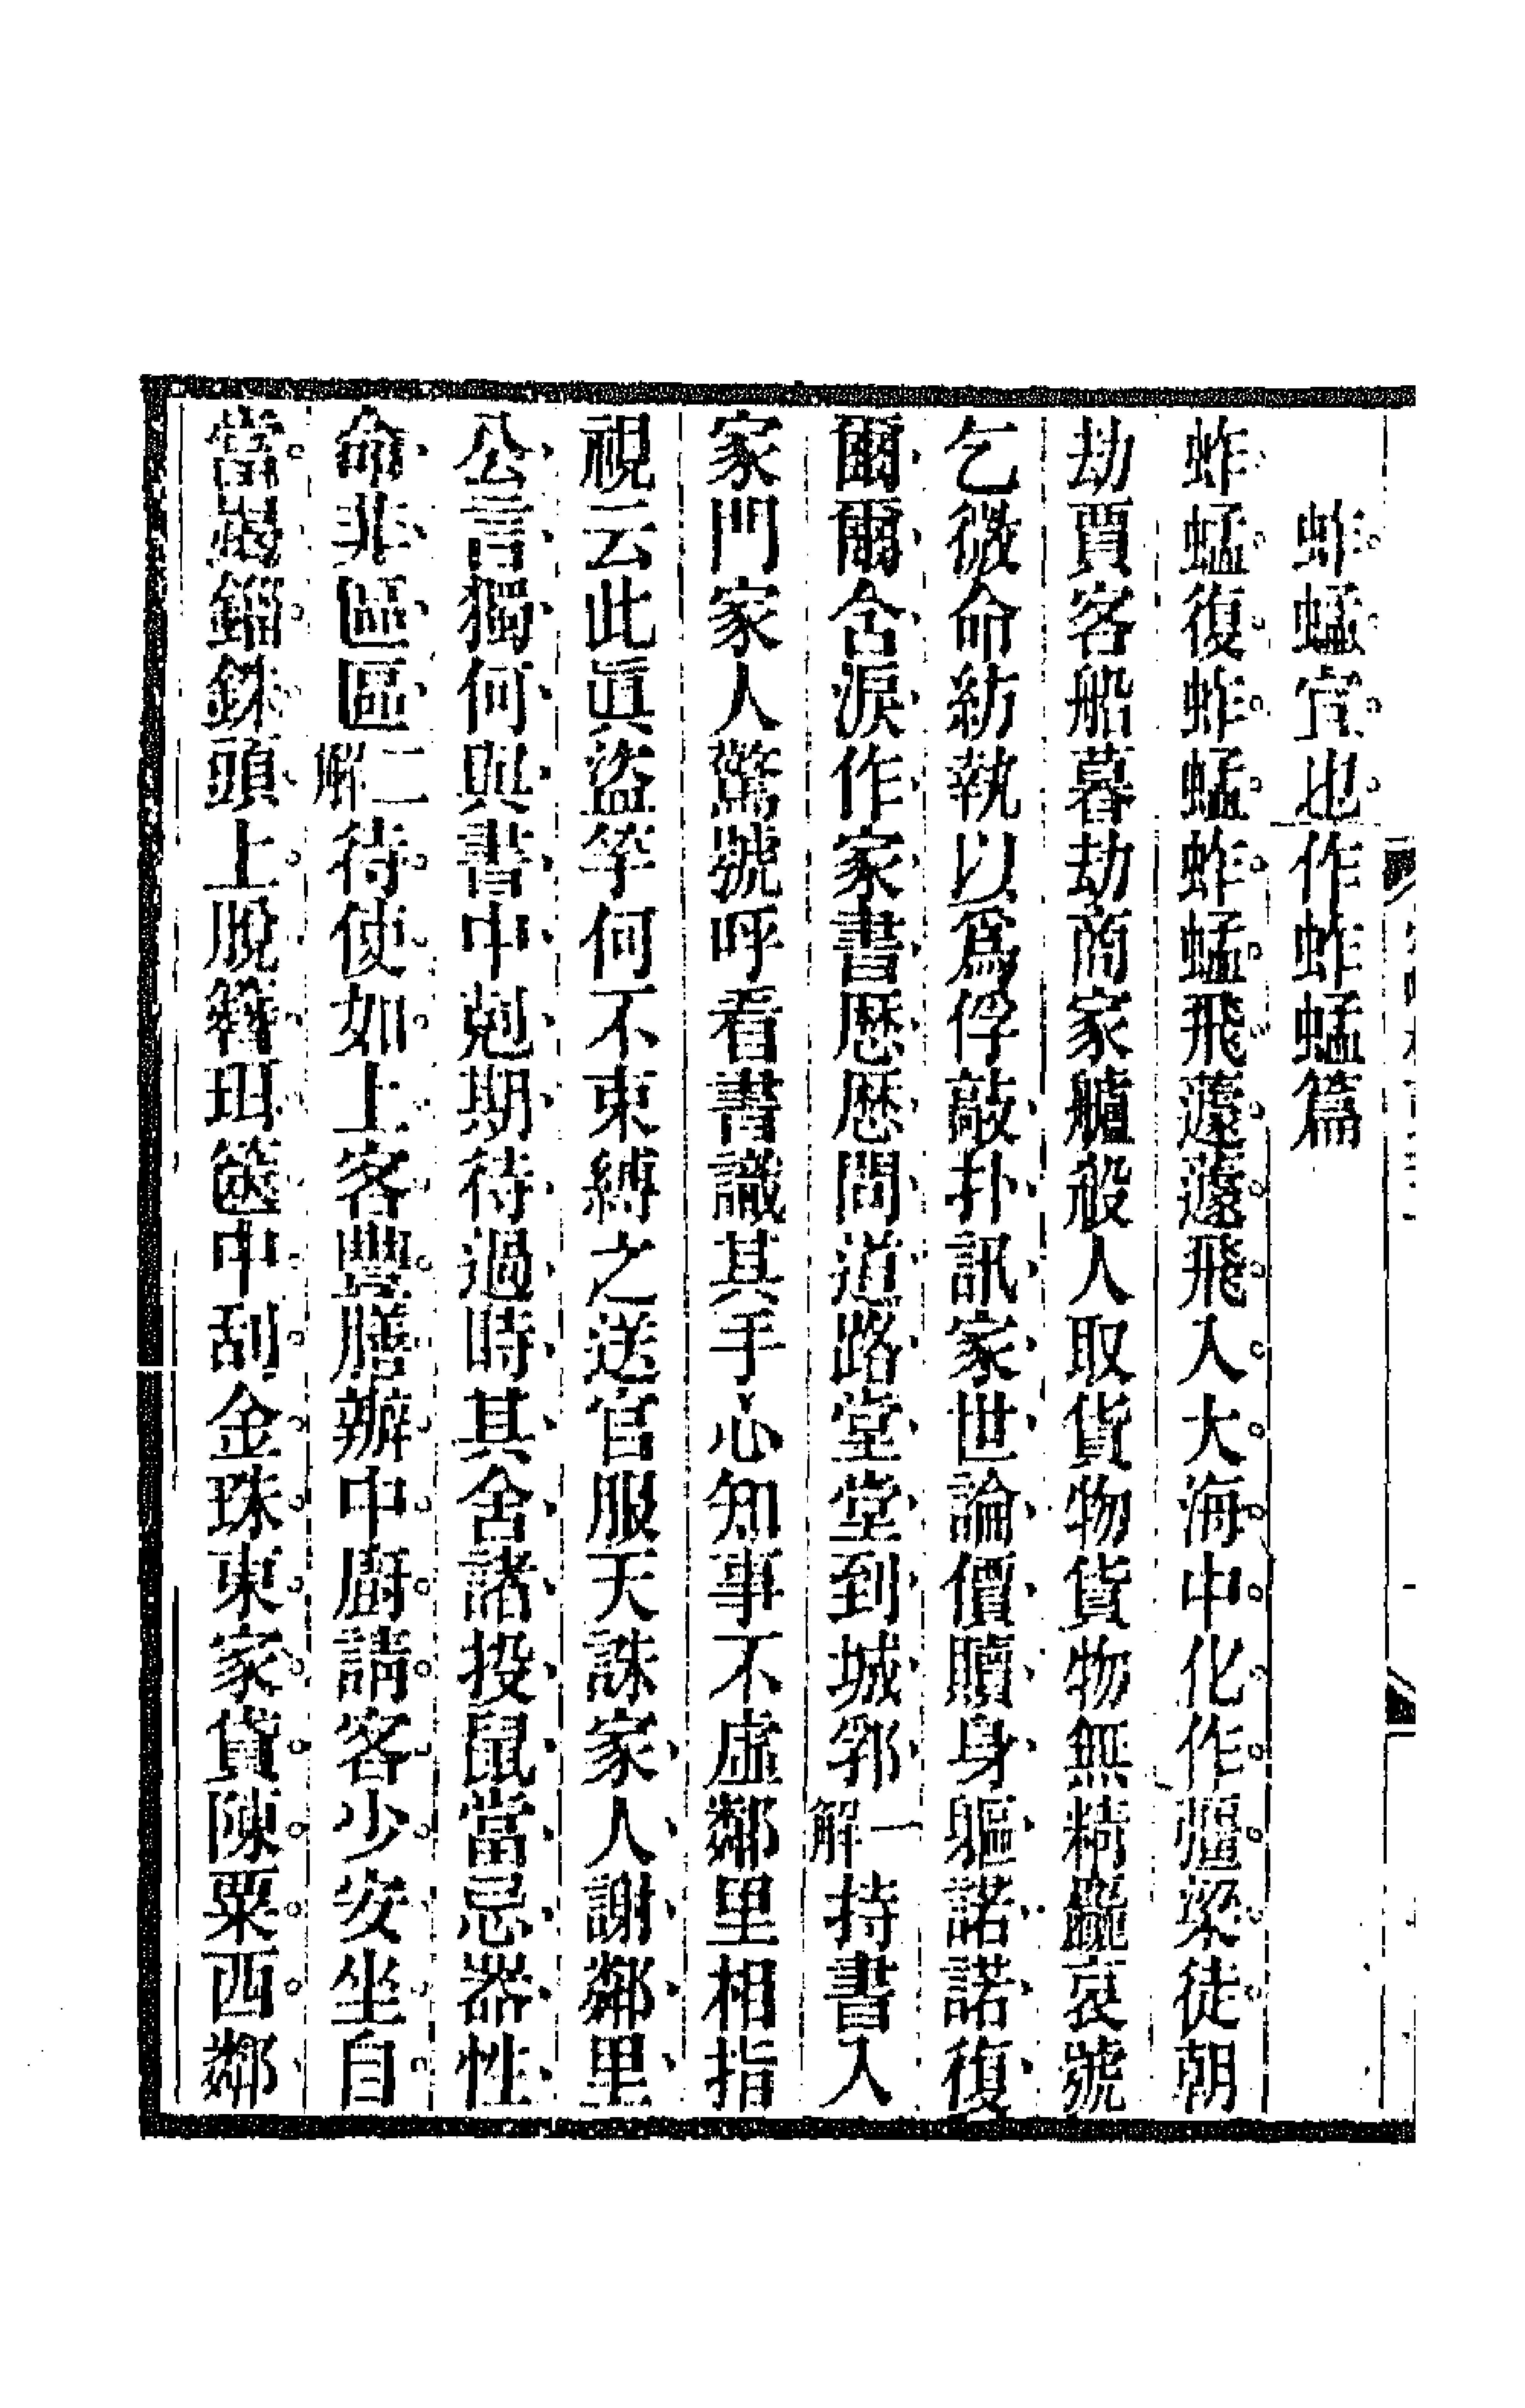 蚱蜢宜也作蚱蜢篇
蚱蜢復蚱蜢蚱蜢飛薳薳飛入大海中化作彊梁徒朝
劫賈客船暮劫商家艫殺人取貨物貨物無精麤哀號
乞微命紡執以爲俘敲扑訊家世論價贖身軀諾諾復
爾爾含淚作家書歷歷問道路堂堂到城郭一解持書入
家門家人驚號呼看書識其手心知事不虛鄰里相指
視云此眞盜竿何不束縛之送官服天誅家人謝鄰里
公言獨何與書中剋期待過時其舍諸投鼠當忌器性
命非區區二解待使如上客豐膳辦中廚請客少安坐自
當竭錙銖頭上脫簪珥篋中刮金珠東家貸陳粟西鄰